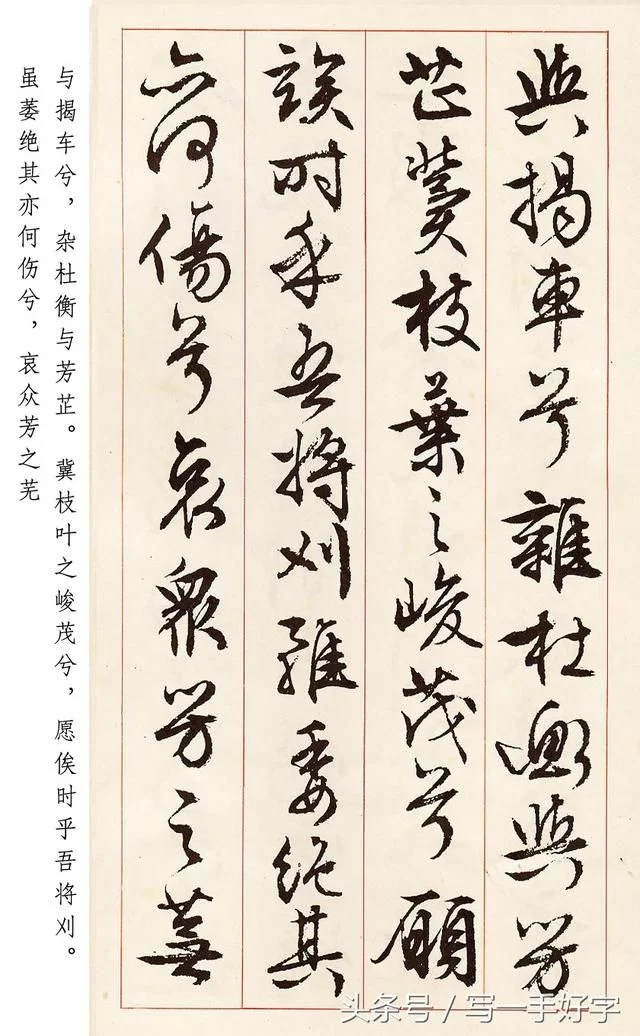 與揭車兮雜杜衡與芳
芷冀枝葉之峻茂兮願
竢时乎吾將刈雖委絶其
亦何傷兮哀衆芳之蕪
与揭车兮，杂杜衡与芳芷。冀枝叶之峻茂兮，愿俟时乎吾将刈。
虽萎绝其亦何伤兮，哀众芳之芜
头条号 / 写一手好字